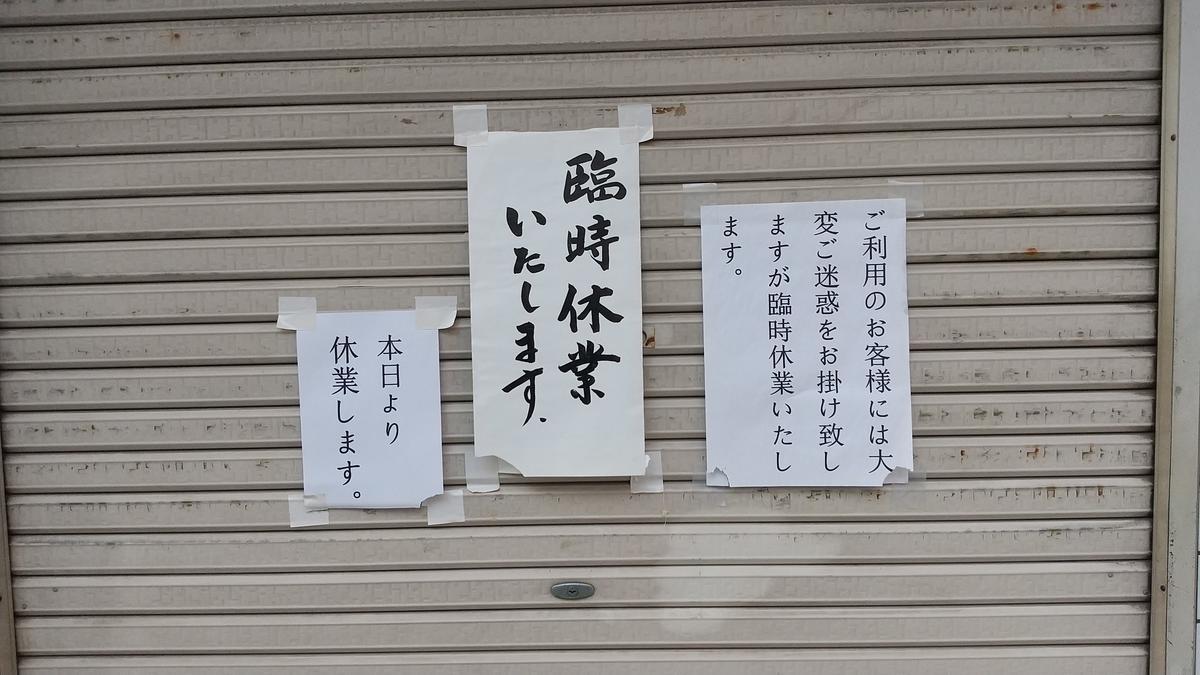 ご利用のお客様には大
変ご迷惑をお掛け致し
ますが臨時休業いたし
ます。
臨時休業
いたします.
本日より
休業します。